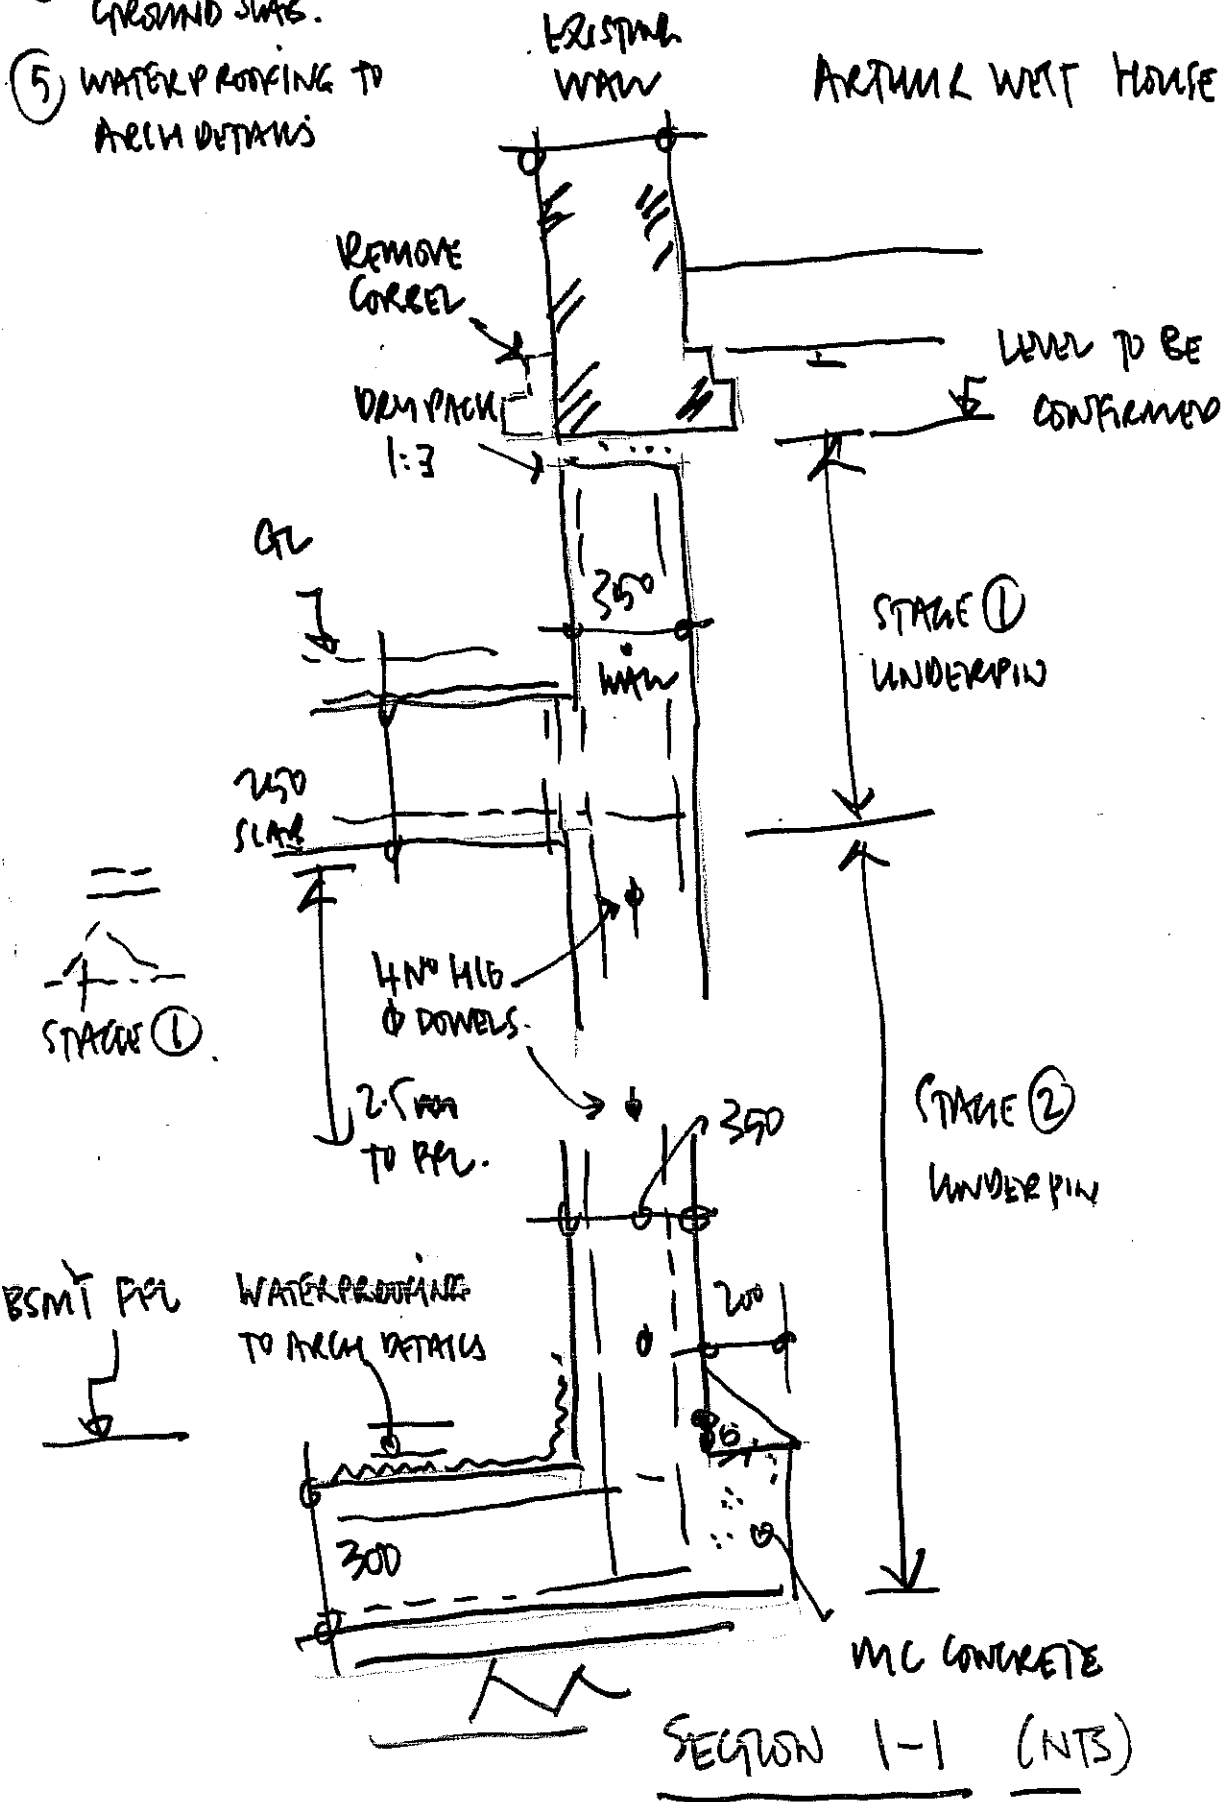 GROUND SLAB.
⑤ WATERPROOFING TO
ARCH DETAILS
EXISTING
WALL
ARTHUR WEST HOUSE
REMOVE
CORBEL
DRY PACK
1:3
LEVEL TO BE
CONFIRMED
GL
350
WALL
STAGE ①
UNDERPIN
250
SLAB
STAGE ①
4 NO H16
φ DOWELS.
2.5
TO FFL.
350
STAGE ②
UNDERPIN
BSMT FFL
WATERPROOFING
TO ARCH DETAILS
200
300
CONCRETE
SECTION 1-1 (NTS)